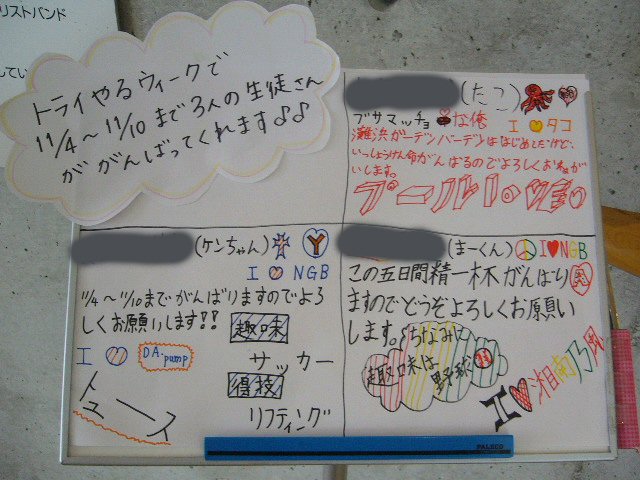 リストバンド
してい
トライやるウィークで
11/4～11/10まで3人の生徒さん
ががんばってくれます♪♪
(たこ)
ブサマッチョ な俺
I タコ
灘浜ガーデンバーデンははじめましたけど、
いっしょうけん命がんばるのでよろしくおねがい
いします。
(ケンちゃん) Y
I NGB
11/4～11/10までがんばりますのでよろ
しくお願いします!!
趣味
I DA.pump
サッカー
得技
リフティング
(まーくん) I♥NGB
この五日間精一杯がんばり
ますのでどうぞよろしくお願い
します。ちなみに
趣味は野球
I♥湘南乃風
PALECO